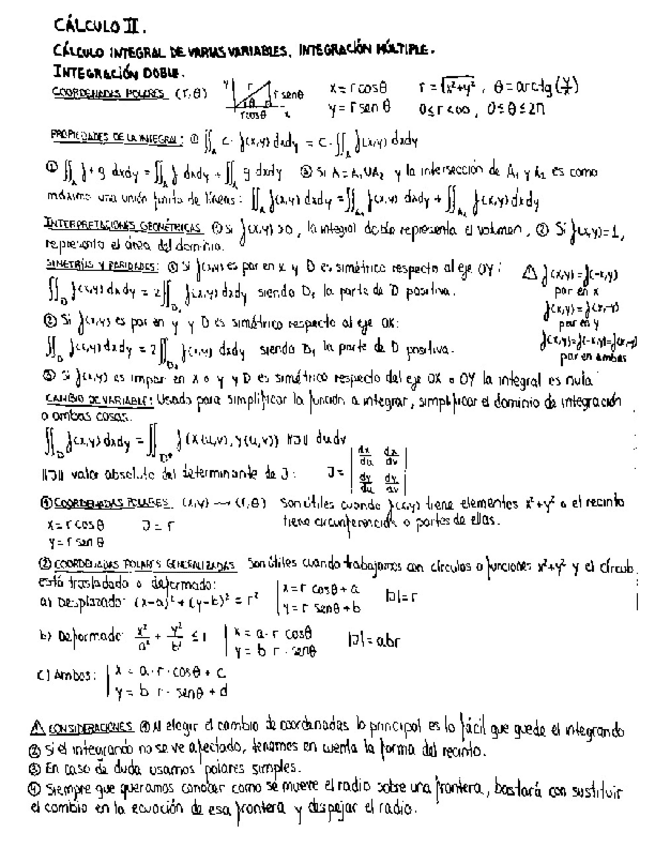 CÁLCULO II.
CÁLCULO INTEGRAL DE VARIAS VARIABLES. INTEGRACIÓN MÚLTIPLE.
INTEGRACIÓN DOBLE.
COORDENADAS POLARES (r,θ) y r rsenθ θ rcosθ x x = r cosθ r = √(x²+y²), θ = arctg(y/x)
y = r sen θ 0≤r<∞, 0≤θ≤2π
PROPIEDADES DE LA INTEGRAL: ① ∬_A c· f(x,y) dxdy = c·∬_A f(x,y) dxdy
② ∬_A f+g dxdy = ∬_A f dxdy + ∬_A g dxdy ③ Si A=A₁UA₂ y la intersección de A₁ y A₂ es como
máximo una unión finita de líneas: ∬_A f(x,y) dxdy = ∬_A₁ f(x,y) dxdy + ∬_A₂ f(x,y) dxdy
INTERPRETACIONES GEOMÉTRICAS ① Si f(x,y)>0, la integral doble representa el volumen, ② Si f(x,y)=1,
representa el área del dominio.
SIMETRÍAS Y PARIDADES: ① Si f(x,y) es par en x y D es simétrico respecto al eje OY:
∬_D f(x,y) dxdy = 2∬_D₁ f(x,y) dxdy siendo D₁ la parte de D positiva.
⚠ f(x,y)=f(-x,y)
par en x
f(x,y)=f(x,-y)
par en y
f(x,y)=f(-x,y)=f(x,-y)
par en ambas
② Si f(x,y) es par en y y D es simétrico respecto al eje OX:
∬_D f(x,y) dxdy = 2∬_D₁ f(x,y) dxdy siendo D₁ la parte de D positiva.
③ Si f(x,y) es impar en x o y y D es simétrico respecto del eje OX o OY la integral es nula
CAMBIO DE VARIABLE: Usado para simplificar la función a integrar, simplificar el dominio de integración
o ambas cosas.
∬_D f(x,y) dxdy = ∬_D* f(x(u,v), y(u,v)) ||J|| dudv
||J|| valor absoluto del determinante de J: J = | dx/du dx/dv |
| dy/du dy/dv |
① COORDENADAS POLARES. (x,y) → (r,θ) Son útiles cuando f(x,y) tiene elementos x²+y² o el recinto
x = r cos θ J = r tiene circunferencias o partes de ellas.
y = r sen θ
② COORDENADAS POLARES GENERALIZADAS Son útiles cuando trabajamos con círculos o funciones x²+y² y el círculo
está trasladado o deformado:
a) Desplazado: (x-a)²+(y-b)² = r² | x = r cosθ + a |J|=r
| y = r senθ + b
b) Deformado: x²/a² + y²/b² ≤ 1 | x = a·r cosθ |J| = abr
| y = b r · senθ
c) Ambos: | x = a·r·cosθ + c
| y = b r · senθ + d
⚠ CONSIDERACIONES ① Al elegir el cambio de coordenadas lo principal es lo fácil que quede el integrando
② Si el integrando no se ve afectado, tenemos en cuenta la forma del recinto.
③ En caso de duda usamos polares simples.
④ Siempre que queramos conocer como se mueve el radio sobre una frontera, bastará con sustituir
el cambio en la ecuación de esa frontera y despejar el radio.